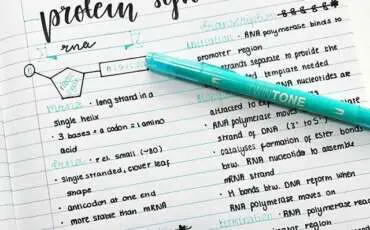 protein syn
rna
mrna
• long strand in a
single helix
• 3 bases = a codon = 1 amino
acid
• rel. small (~80)
single stranded, clover leaf
shape
• anticodon at one end
• more stable than mRNA
Transcription
Initiation • RNA polymerase binds to
promoter region
strands separate to provide the
template needed
RNA nucleotides are
attracted to exp
• RNA polymerase moves
strand of DNA (3' to 5')
• catalyses formation of ester bonds
btw. RNA nucleotides to assemble
mRNA strand
• H bonds btw. DNA reform when
RNA polymerase moves on
• RNA polymerase reac
TONE